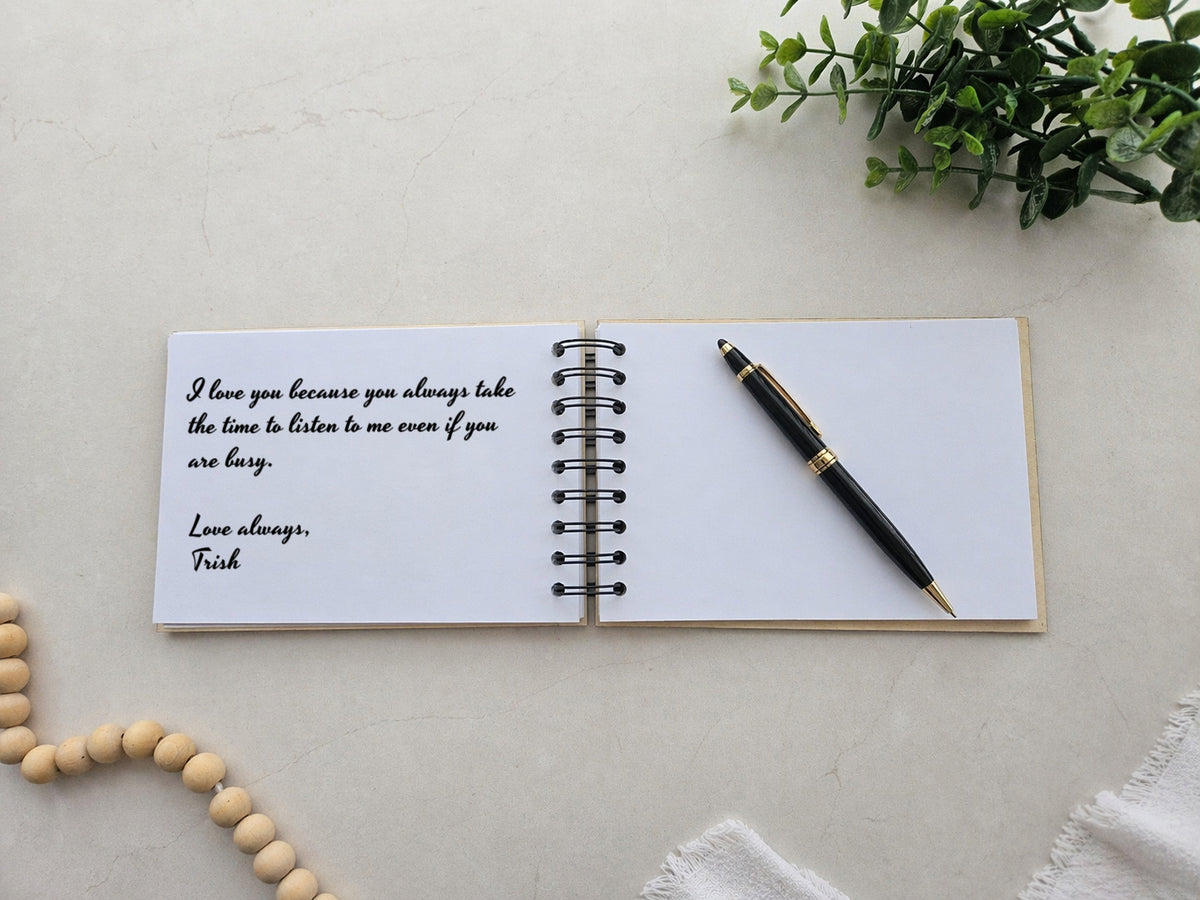 I love you because you always take
the time to listen to me even if you
are busy.
Love always,
Trish